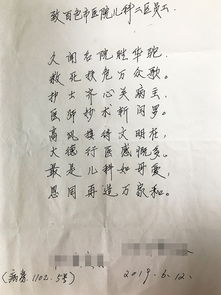 致百色市医院儿科二区员工
久闻右院胜华驼,
救死扶危万众歌。
护士齐心关病主,
医师妙术斩阎罗。
高风接待文明在,
大德行医感慨多。
最是儿科如母爱,
恩同再造万家和。
(病房1102.5号)
2019.6.12.